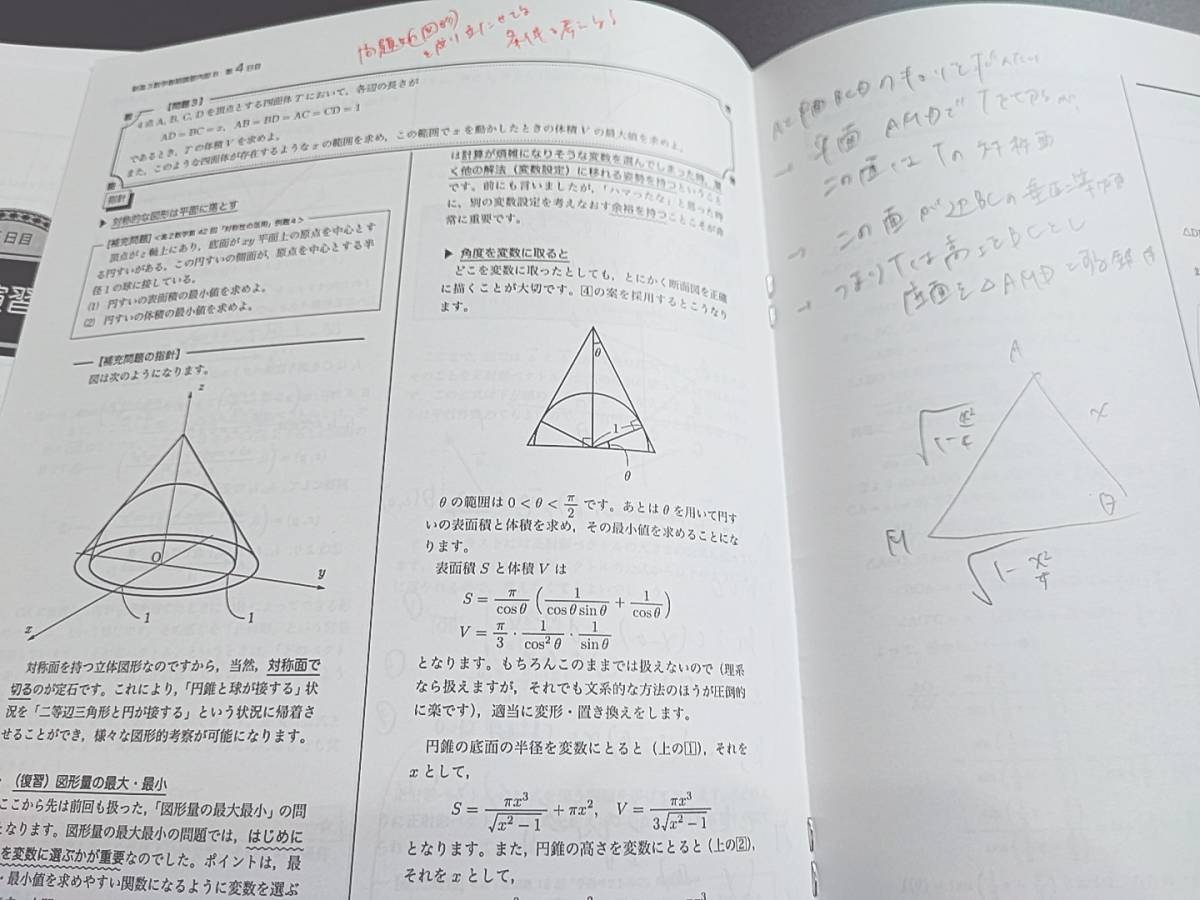 第4日目
【問題3】
4点A, B, C, Dを頂点とする四面体Tにおいて，各辺の長さが
AD＝BC＝x，AB＝BD＝AC＝CD＝1
であるとき，Tの体積Vを求めよ。
また，このような四面体が存在するようなxの範囲を求め，この範囲でxを動かしたときの体積Vの最大値を求めよ。
指針
▶ 対称的な図形は平面に落とす
【補充問題】
頂点がz軸上にあり，底面がxy平面上の原点を中心とす
る円すいがある。この円すいの側面が，原点を中心とする半
径1の球に接している。
(1) 円すいの表面積の最小値を求めよ。
(2) 円すいの体積の最小値を求めよ。
【補充問題の指針】
図は次のようになります。
z
O
y
1
1
x
対称面を持つ立体図形なのですから，当然，対称面で
切るのが定石です。これにより，「円錐と球が接する」状
況を「二等辺三角形と円が接する」という状況に帰着さ
せることができ，様々な図形的考察が可能になります。
（復習）図形量の最大・最小
ここから先は前回も扱った，「図形量の最大最小」の問
となります。図形量の最大最小の問題では，はじめに
を変数に選ぶかが重要なのでした。ポイントは，最
・最小値を求めやすい関数になるように変数を選ぶ
は計算が煩雑になりそうな変数を選んでしまった時，
く他の解法（変数設定）に移れる姿勢を持つということ
です。前にも言いましたが，「ハマったな」と思った時
に，別の変数設定を考えなおす余裕を持つことこそが非
常に重要です。
▶ 角度を変数に取ると
どこを変数に取ったとしても，とにかく断面図を正確
に描くことが大切です。[4]の案を採用するとこうなり
ます。
θ
1
θ
θの範囲は 0＜θ＜π/2 です。あとはθを用いて円す
いの表面積と体積を求め，その最小値を求めることにな
ります。
表面積Sと体積Vは
S＝π/cosθ (1/(cosθ sinθ)＋1/cosθ)
V＝π/3・1/cos²θ・1/sinθ
となります。もちろんこのままでは扱えないので（理系
なら扱えますが，それでも文系的な方法のほうが圧倒的
に楽です），適当に変形・置き換えをします。
円錐の底面の半径を変数にとると（上の[1]），それを
xとして，
S＝πx³/√(x²－1)＋πx²，V＝πx³/(3√(x²－1))
となります。また，円錐の高さを変数にとると（上の[2]），
それをxとして，
平面 AMDで Tを
この面は Tの対称面
この面が 辺BCの垂直二等分面
つまりTは高さをBCとし
底面を △AMD
A
x
M
θ